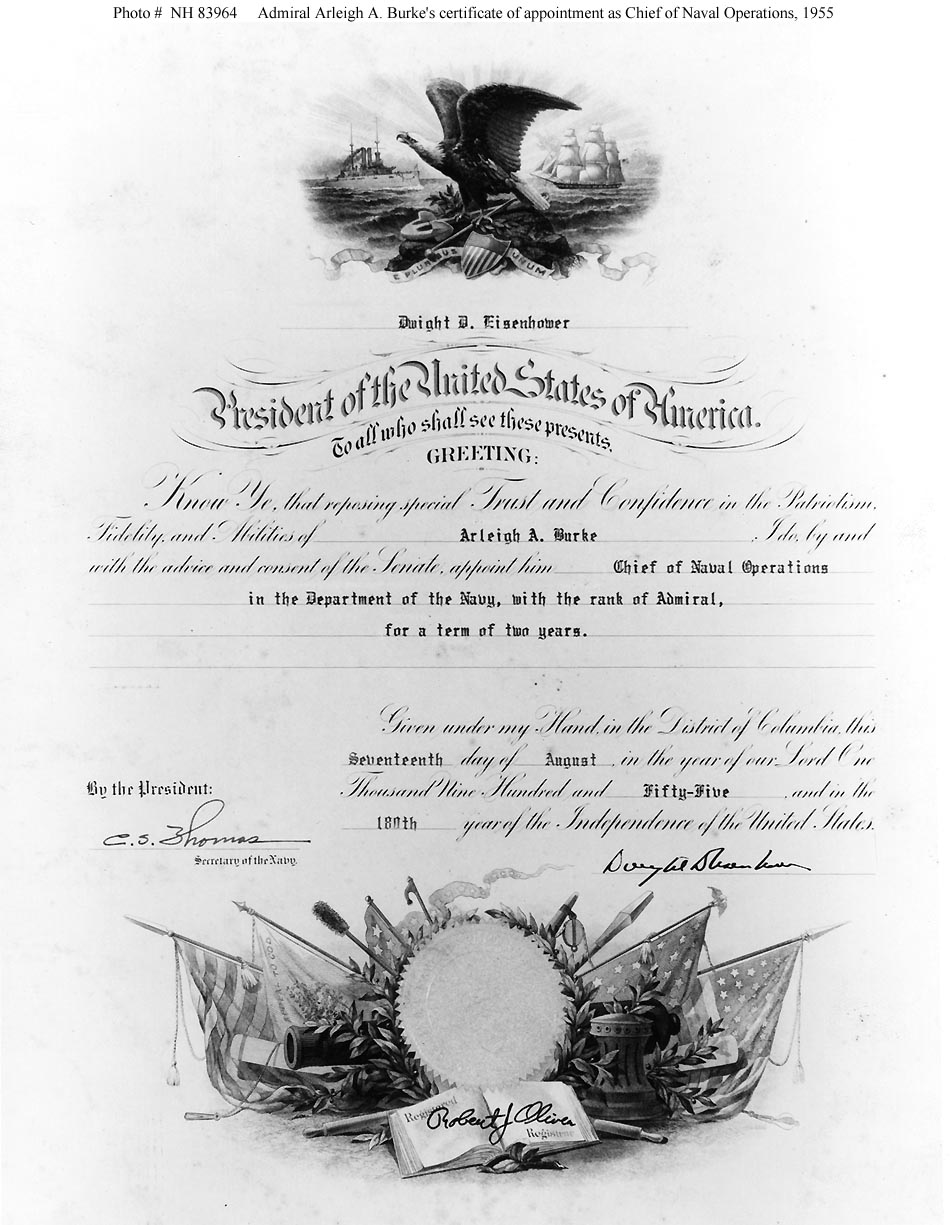 Photo #  NH 83964     Admiral Arleigh A. Burke's certificate of appointment as Chief of Naval Operations, 1955
E PLURIBUS UNUM
Dwight D. Eisenhower
President of the United States of America.
To all who shall see these presents,
GREETING:
Know Ye, that reposing special Trust and Confidence in the Patriotism,
Fidelity, and Abilities of Arleigh A. Burke , I do, by and
with the advice and consent of the Senate, appoint him Chief of Naval Operations
in the Department of the Navy, with the rank of Admiral,
for a term of two years.
Given under my Hand, in the District of Columbia, this
Seventeenth day of August , in the year of our Lord One
Thousand Nine Hundred and Fifty-Five , and in the
180th year of the Independence of the United States.
By the President:
C. S. Thomas
Secretary of the Navy.
Dwight D Eisenhower
Registered
Robert J Oliver
Registrar